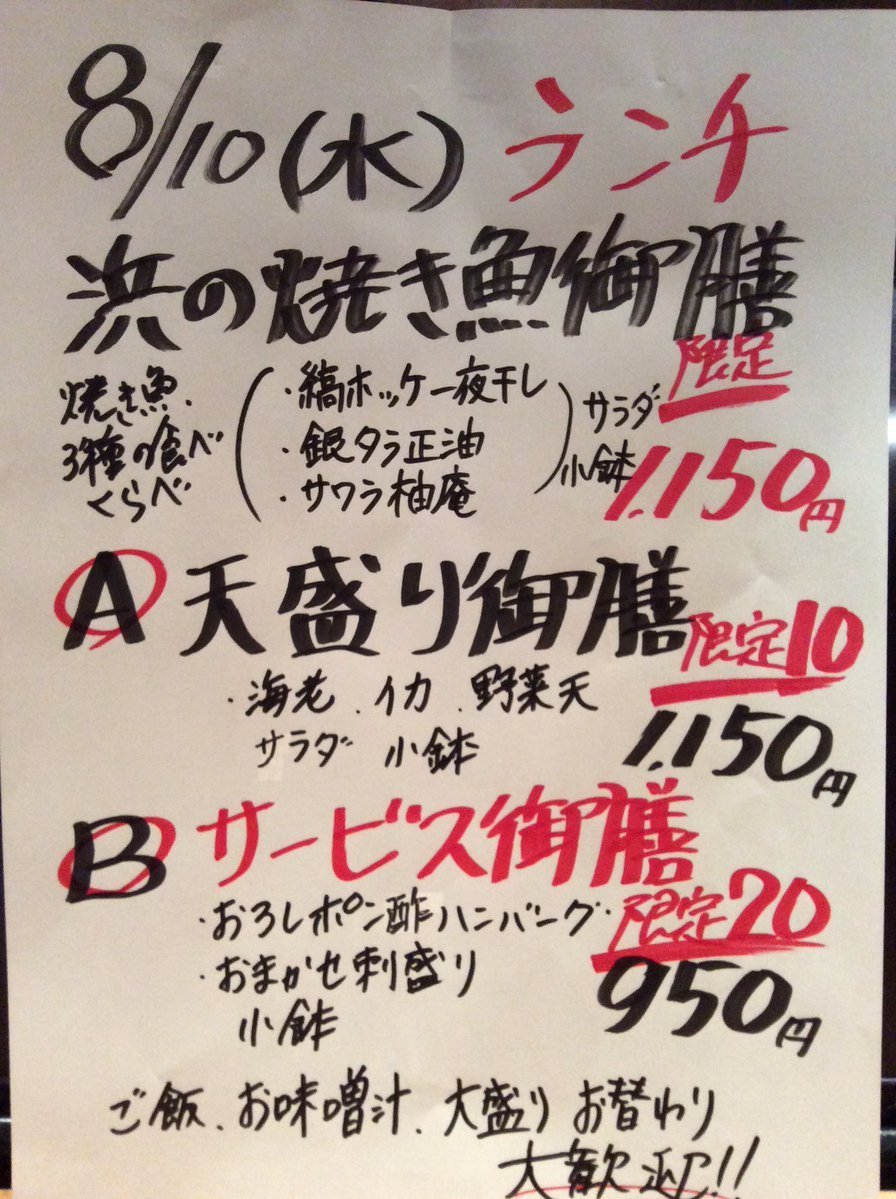 8/10(水) ランチ
浜の焼き魚御膳
限定
焼き魚、
3種の食べ
くらべ
・縞ホッケ一夜干し
・銀タラ正油
・サワラ柚庵
サラダ
小鉢
1,150円
A 天盛り御膳
限定10
・海老、イカ、野菜天
サラダ 小鉢
1,150円
B サービス御膳
・おろしポン酢ハンバーグ・
限定20
・おまかせ刺盛り
小鉢
950円
ご飯、お味噌汁、大盛りお替わり
大歓迎!!